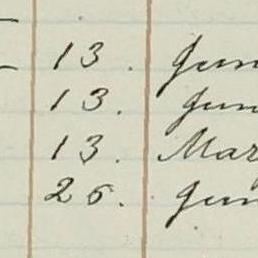 13. Jun
13. Jun
13. Mar
26. Jun